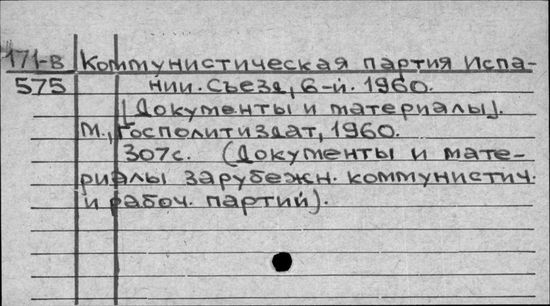 171-В Коммунистическая партия Испа-
575 нии. Съезд, 6-й. 1960.
[Документы и материалы].
М., Госполитиздат, 1960.
307с. (Документы и мате-
риалы зарубежн. коммунистич.
и рабоч. партий).